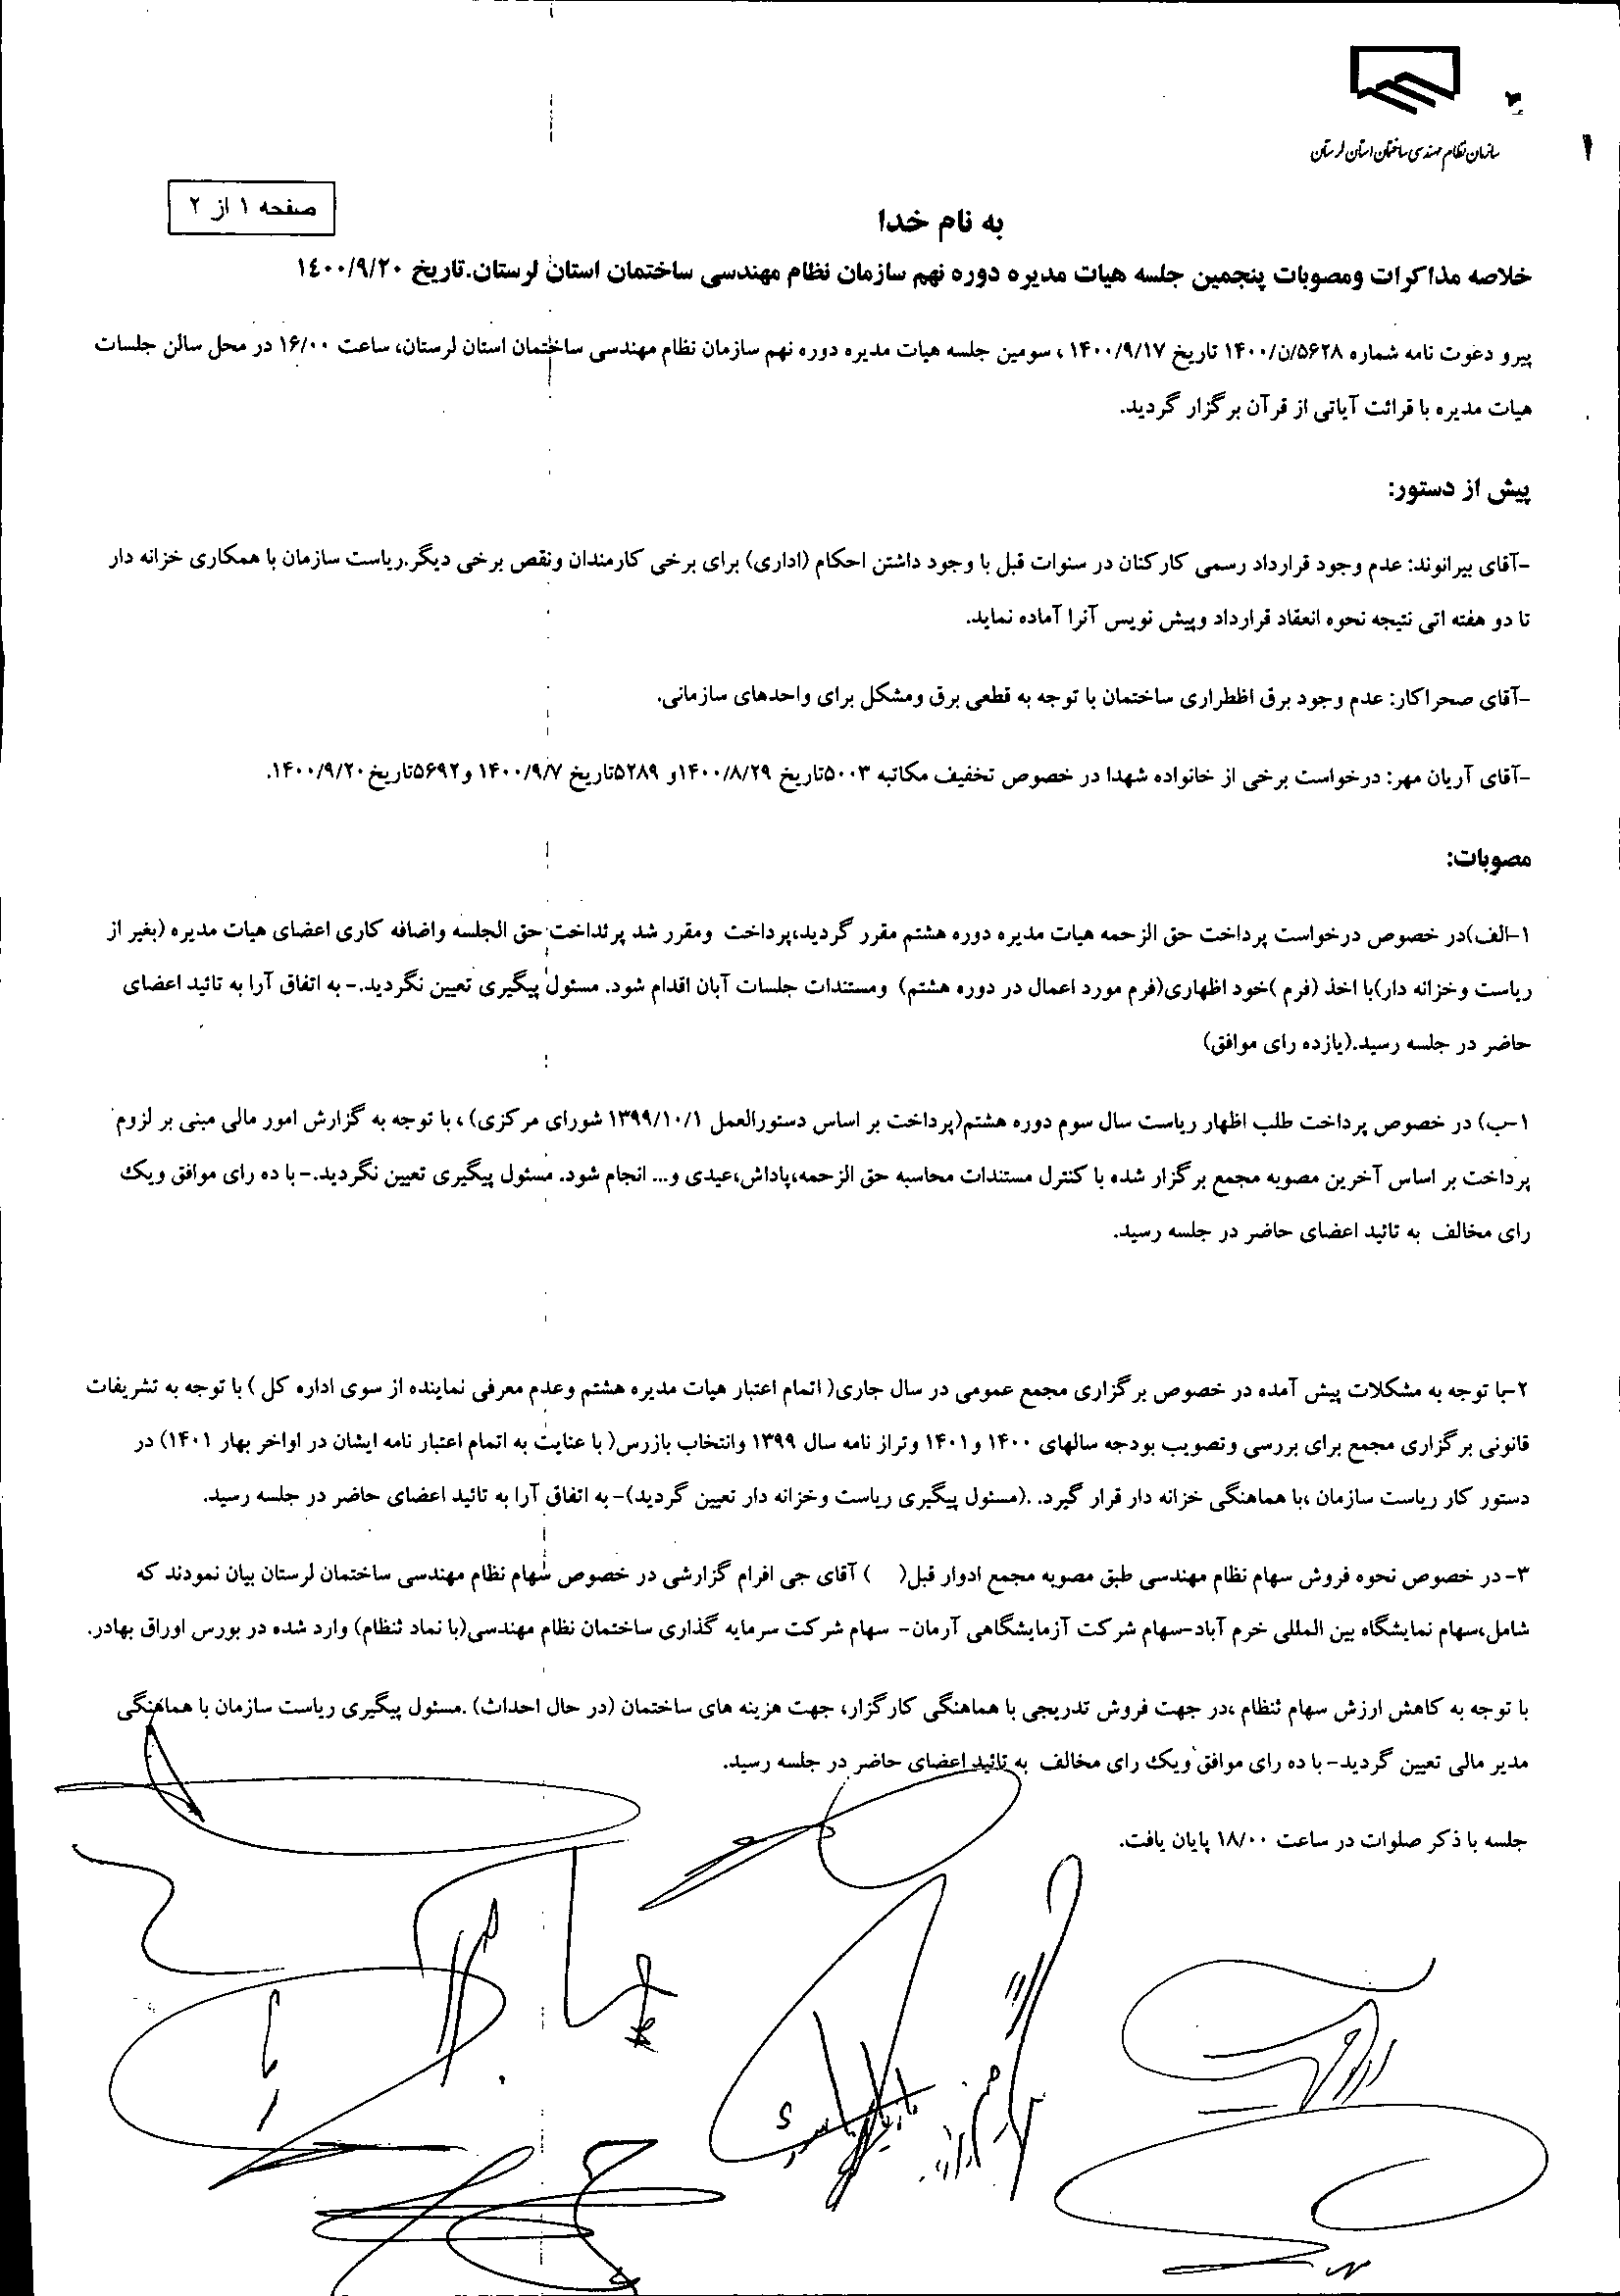 سازمان نظام مهندسی ساختمان استان لرستان
صفحه ۱ از ۲
به نام خدا
خلاصه مذاکرات ومصوبات پنجمین جلسه هیات مدیره دوره نهم سازمان نظام مهندسی ساختمان استان لرستان.تاریخ ۱۴۰۰/۹/۲۰
پیرو دعوت نامه شماره ۵۶۲۸/ن/۱۴۰۰ تاریخ ۱۴۰۰/۹/۱۷ ، سومین جلسه هیات مدیره دوره نهم سازمان نظام مهندسی ساختمان استان لرستان، ساعت ۱۶/۰۰ در محل سالن جلسات
هیات مدیره با قرائت آیاتی از قرآن برگزار گردید.
پیش از دستور:
-آقای بیرانوند: عدم وجود قرارداد رسمی کارکنان در سنوات قبل با وجود داشتن احکام (اداری) برای برخی کارمندان ونقص برخی دیگر.ریاست سازمان با همکاری خزانه دار
تا دو هفته اتی نتیجه نحوه انعقاد قرارداد وپیش نویس آنرا آماده نماید.
-آقای صحراکار: عدم وجود برق اظطراری ساختمان با توجه به قطعی برق ومشکل برای واحدهای سازمانی.
-آقای آریان مهر: درخواست برخی از خانواده شهدا در خصوص تخفیف مکاتبه ۵۰۰۳تاریخ ۱۴۰۰/۸/۲۹و ۵۲۸۹تاریخ ۱۴۰۰/۹/۷ و۵۶۹۲تاریخ ۱۴۰۰/۹/۲۰.
مصوبات:
۱-الف)در خصوص درخواست پرداخت حق الزحمه هیات مدیره دوره هشتم مقرر گردید،پرداخت ومقرر شد پرئداخت حق الجلسه واضافه کاری اعضای هیات مدیره (بغیر از
ریاست وخزانه دار)با اخذ (فرم )خود اظهاری(فرم مورد اعمال در دوره هشتم) ومستندات جلسات آبان اقدام شود. مسئول پیگیری تعیین نگردید.- به اتفاق آرا به تائید اعضای
حاضر در جلسه رسید.(یازده رای موافق)
۱-ب) در خصوص پرداخت طلب اظهار ریاست سال سوم دوره هشتم(پرداخت بر اساس دستورالعمل ۱۳۹۹/۱۰/۱ شورای مرکزی) ، با توجه به گزارش امور مالی مبنی بر لزوم
پرداخت بر اساس آخرین مصوبه مجمع برگزار شده با کنترل مستندات محاسبه حق الزحمه،پاداش،عیدی و... انجام شود. مسئول پیگیری تعیین نگردید.- با ده رای موافق ویک
رای مخالف به تائید اعضای حاضر در جلسه رسید.
۲-با توجه به مشکلات پیش آمده در خصوص برگزاری مجمع عمومی در سال جاری( اتمام اعتبار هیات مدیره هشتم وعدم معرفی نماینده از سوی اداره کل ) با توجه به تشریفات
قانونی برگزاری مجمع برای بررسی وتصویب بودجه سالهای ۱۴۰۰ و۱۴۰۱ وتراز نامه سال ۱۳۹۹ وانتخاب بازرس( با عنایت به اتمام اعتبار نامه ایشان در اواخر بهار ۱۴۰۱) در
دستور کار ریاست سازمان ،با هماهنگی خزانه دار قرار گیرد. .(مسئول پیگیری ریاست وخزانه دار تعیین گردید)- به اتفاق آرا به تائید اعضای حاضر در جلسه رسید.
۳- در خصوص نحوه فروش سهام نظام مهندسی طبق مصوبه مجمع ادوار قبل( ) آقای جی افرام گزارشی در خصوص سهام نظام مهندسی ساختمان لرستان بیان نمودند که
شامل،سهام نمایشگاه بین المللی خرم آباد-سهام شرکت آزمایشگاهی آرمان- سهام شرکت سرمایه گذاری ساختمان نظام مهندسی(با نماد ثنظام) وارد شده در بورس اوراق بهادر.
با توجه به کاهش ارزش سهام ثنظام ،در جهت فروش تدریجی با هماهنگی کارگزار، جهت هزینه های ساختمان (در حال احداث) .مسئول پیگیری ریاست سازمان با هماهنگی
مدیر مالی تعیین گردید- با ده رای موافق ویک رای مخالف به تائید اعضای حاضر در جلسه رسید.
جلسه با ذکر صلوات در ساعت ۱۸/۰۰ پایان یافت.